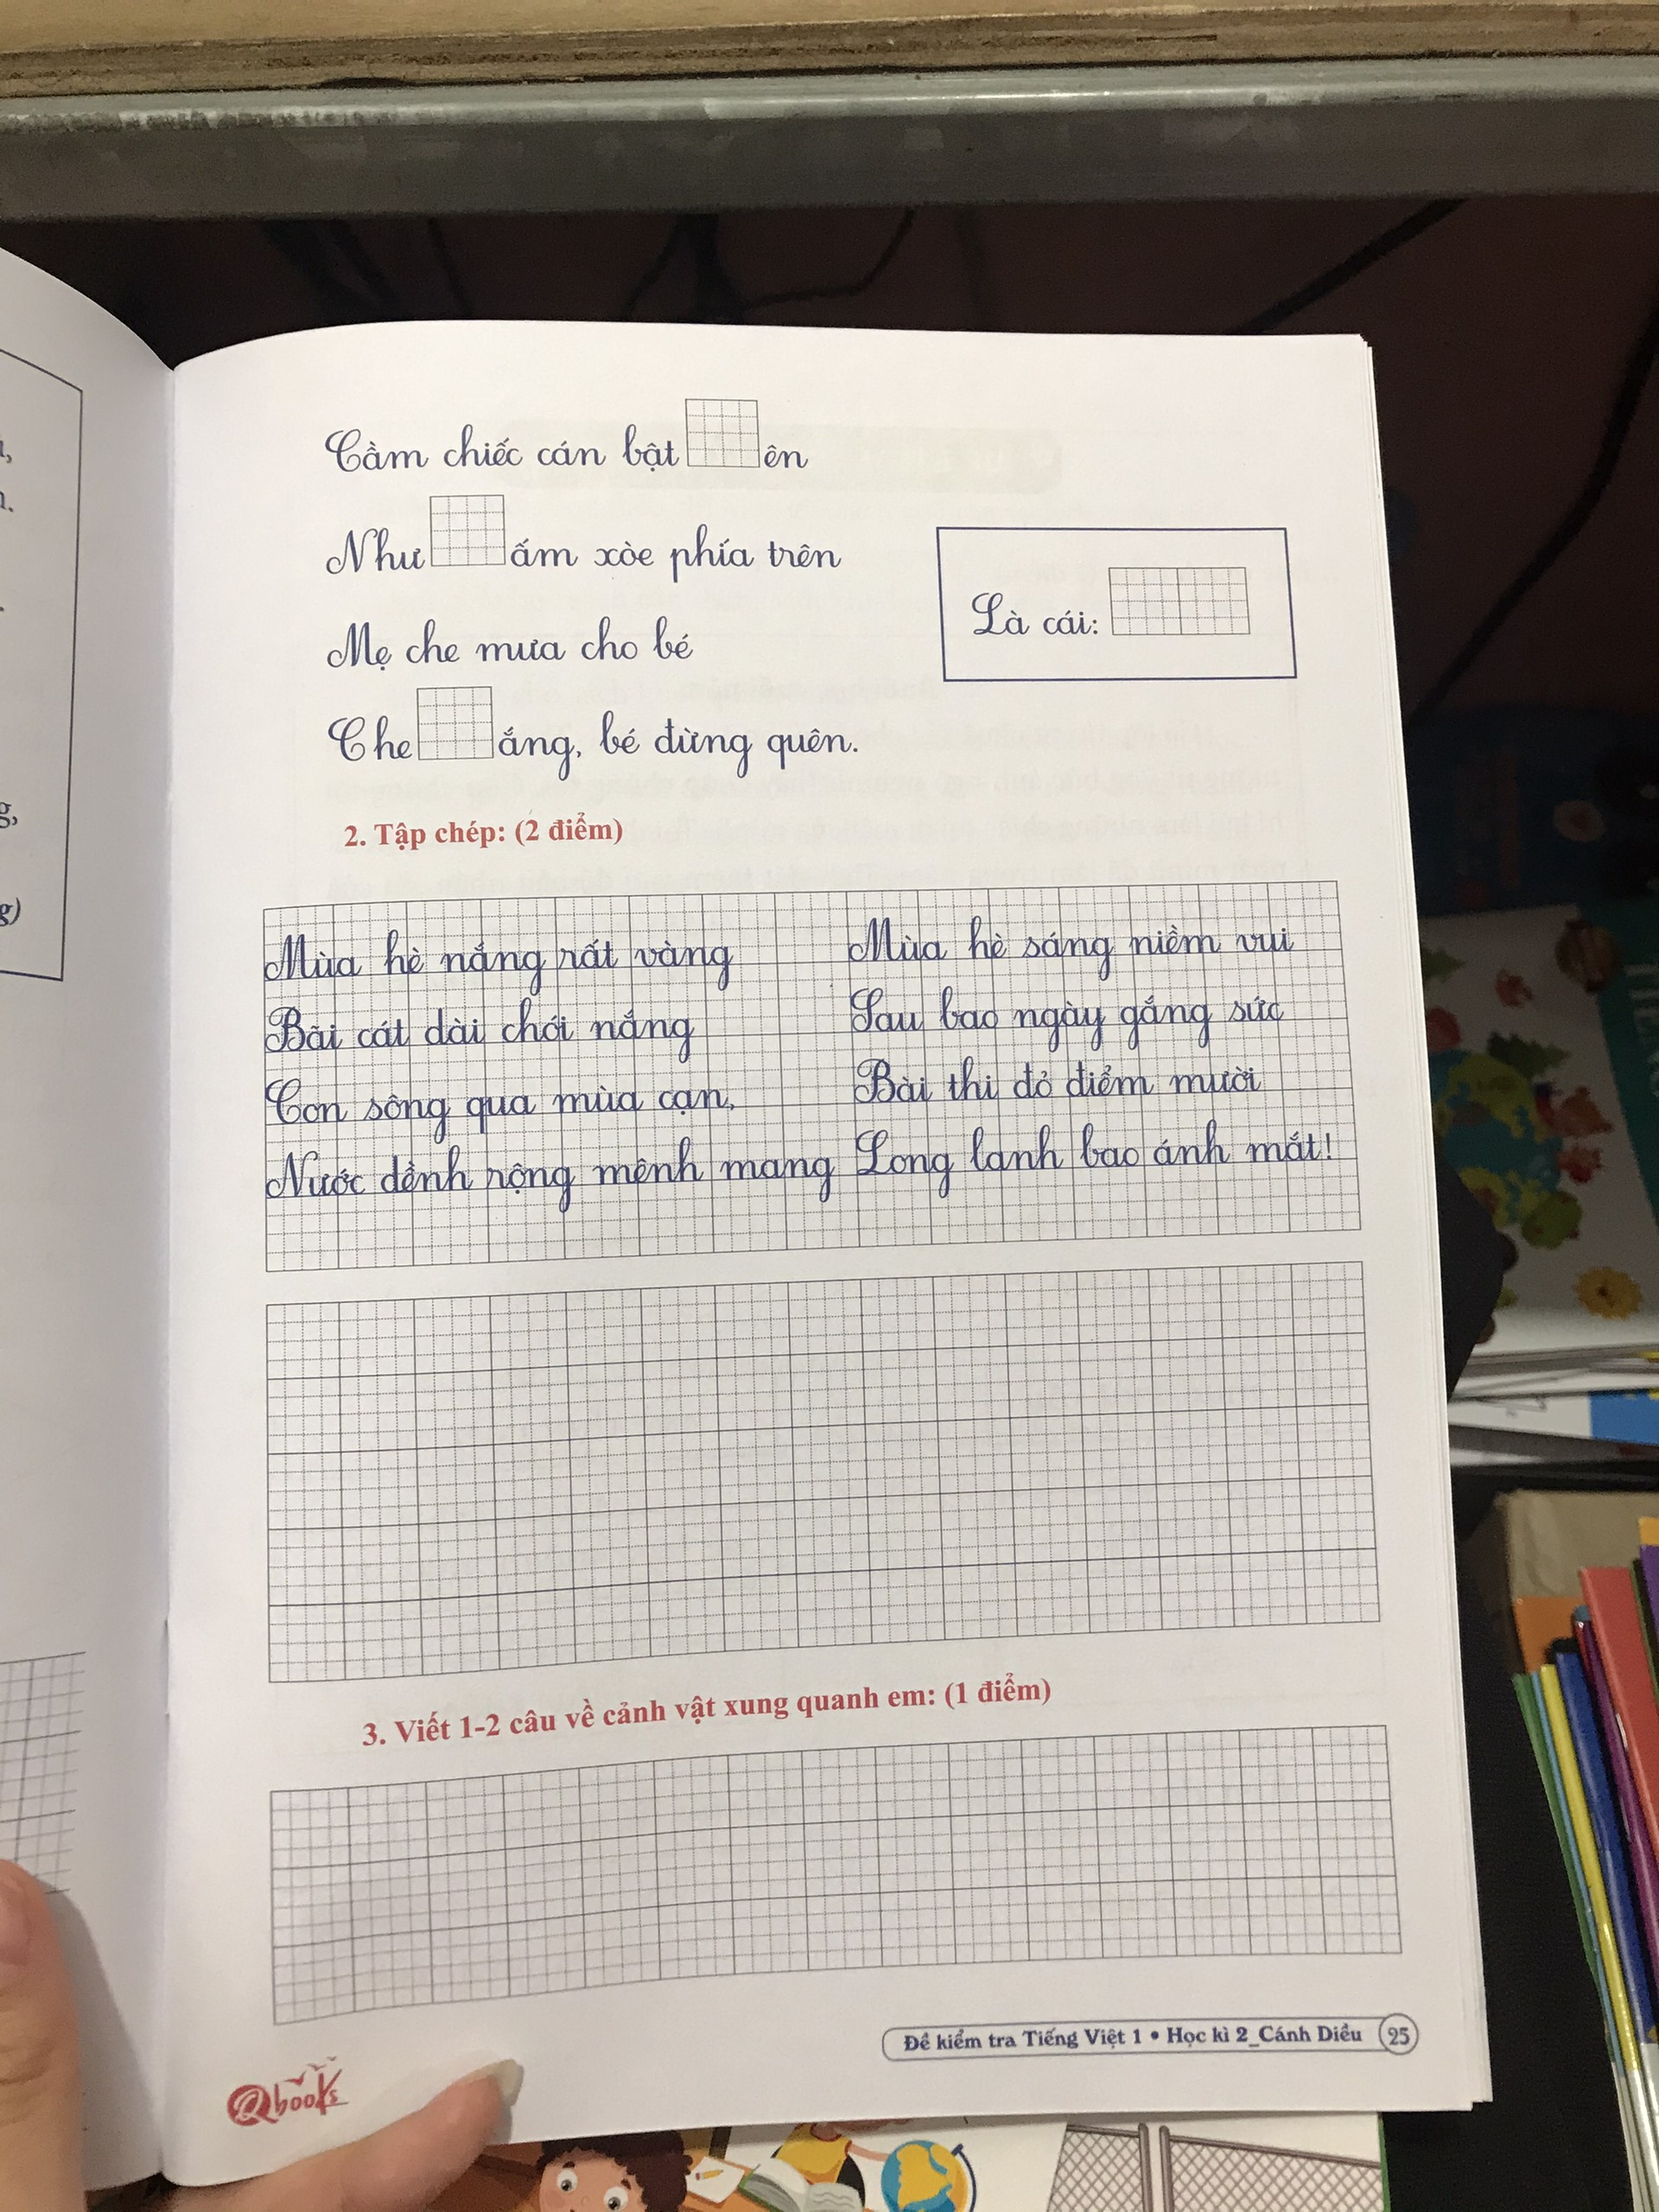 Cầm chiếc cán bật ên
Như ấm xòe phía trên
Mẹ che mưa cho bé
Che ắng, bé đừng quên.
Là cái:
2. Tập chép: (2 điểm)
Mùa hè nắng rất vàng
Bãi cát dài chói nắng
Con sông qua mùa cạn,
Nước dềnh rộng mênh mang
Mùa hè sáng niềm vui
Sau bao ngày gắng sức
Bài thi đỏ điểm mười
Long lanh bao ánh mắt!
3. Viết 1-2 câu về cảnh vật xung quanh em: (1 điểm)
Đề kiểm tra Tiếng Việt 1 • Học kì 2_Cánh Diều 25
Qbooks